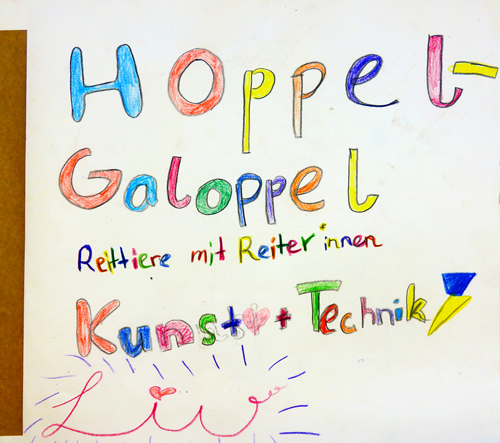 Hoppel-
Galoppel
Reittiere mit Reiter*innen
Kunst + Technik
Liv